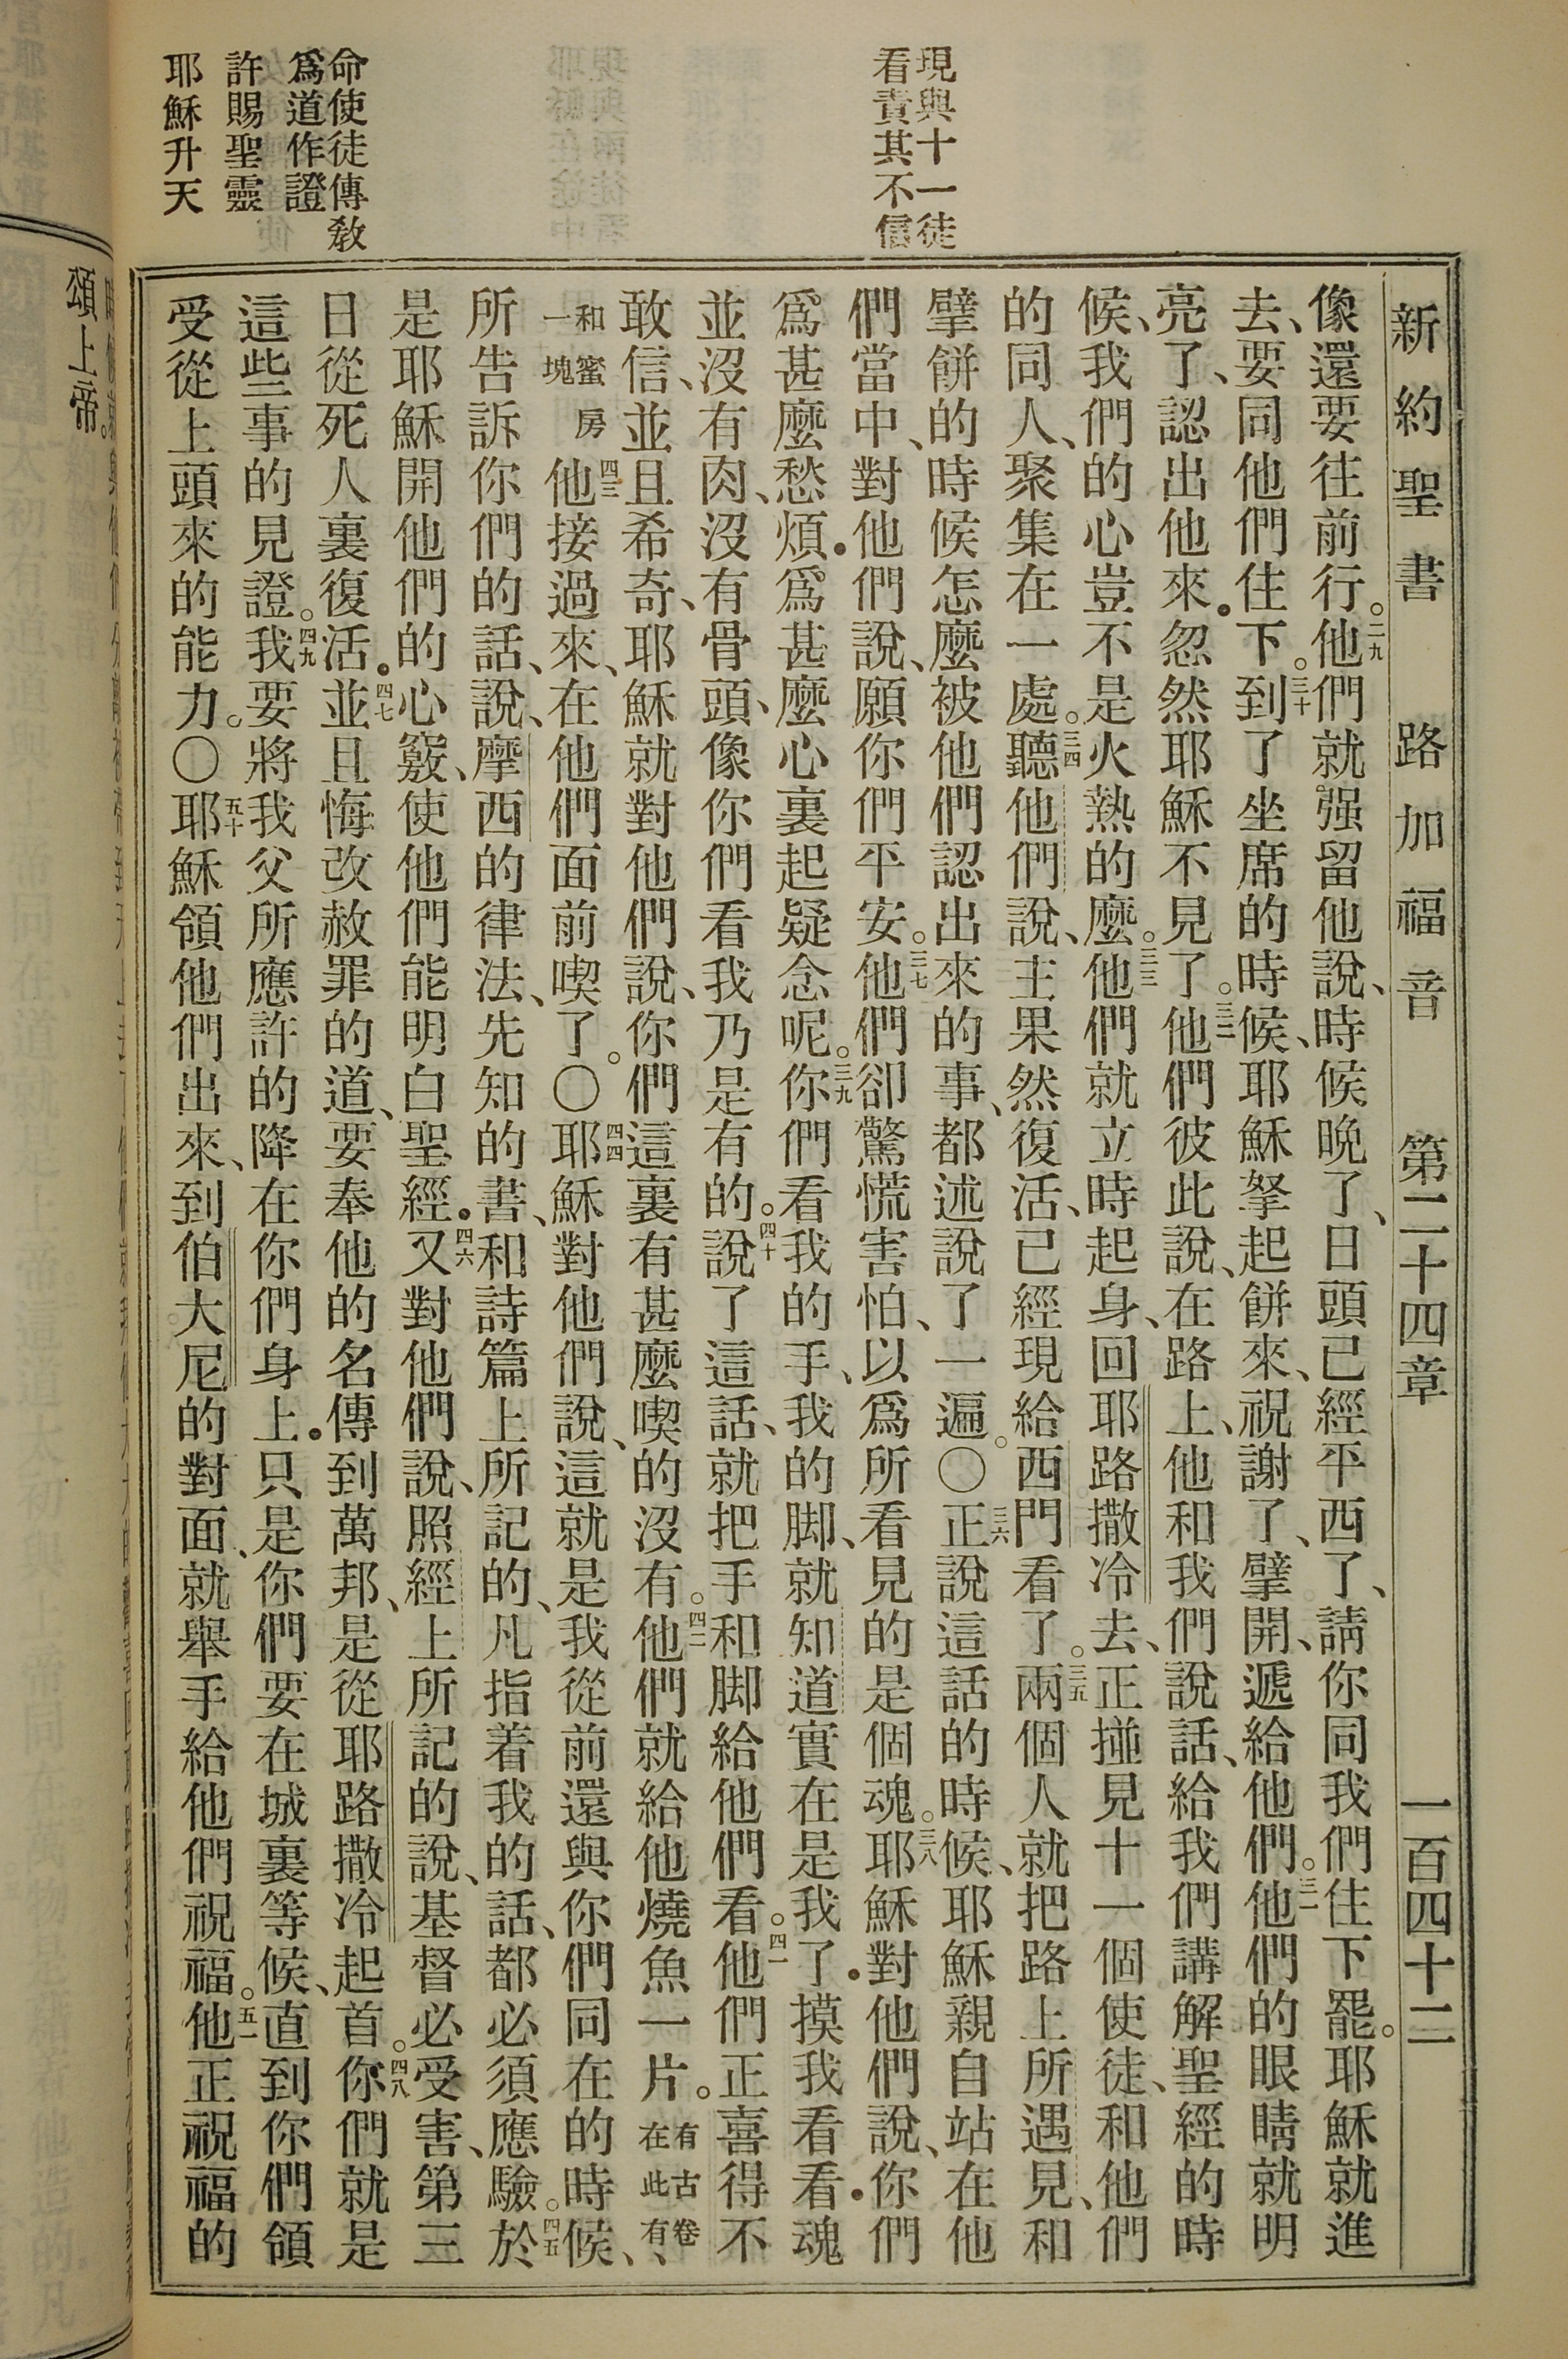 新約聖書　路加福音　第二十四章　一百四十二
現與十一徒
看責其不信
命使徒傳教
爲道作證
許賜聖靈
耶穌升天
像還要往前行。二九他們就强留他說、時候晚了、日頭已經平西了、請你同我們住下罷。耶穌就進
去、要同他們住下。三十到了坐席的時候、耶穌拏起餅來、祝謝了、擘開、遞給他們。三一他們的眼睛就明
亮了、認出他來．忽然耶穌不見了。三二他們彼此說、在路上、他和我們說話、給我們講解聖經的時
候、我們的心豈不是火熱的麼。三三他們就立時起身、回耶路撒冷去、正撞見十一個使徒、和他們
的同人、聚集在一處。三四聽他們說、主果然復活、已經現給西門看了。三五兩個人就把路上所遇見、和
擘餅的時候怎麼被他們認出來的事、都述說了一遍。〇三六正說這話的時候、耶穌親自站在他
們當中、對他們說、願你們平安。三七他們卻驚慌害怕、以爲所看見的是個魂。三八耶穌對他們說、你們
爲甚麼愁煩．爲甚麼心裏起疑念呢。三九你們看我的手、我的脚、就知道實在是我了．摸我看看．魂
並沒有肉、沒有骨頭、像你們看我乃是有的。四十說了這話、就把手和脚給他們看。四一他們正喜得不
敢信、並且希奇、耶穌就對他們說、你們這裏有甚麼喫的沒有。四二他們就給他燒魚一片。有古卷在此有、
和蜜房一塊四三他接過來、在他們面前喫了。〇四四耶穌對他們說、這就是我從前還與你們同在的時候、
所告訴你們的話、說、摩西的律法、先知的書、和詩篇上所記的、凡指着我的話、都必須應驗。四五於
是耶穌開他們的心竅、使他們能明白聖經．四六又對他們說、照經上所記的說、基督必受害、第三
日從死人裏復活．四七並且悔改赦罪的道、要奉他的名傳到萬邦、是從耶路撒冷起首。四八你們就是
這些事的見證。四九我要將我父所應許的降在你們身上．只是你們要在城裏等候、直到你們領
受從上頭來的能力。〇五十耶穌領他們出來、到伯大尼的對面、就舉手給他們祝福。五一他正祝福的
頌上帝。